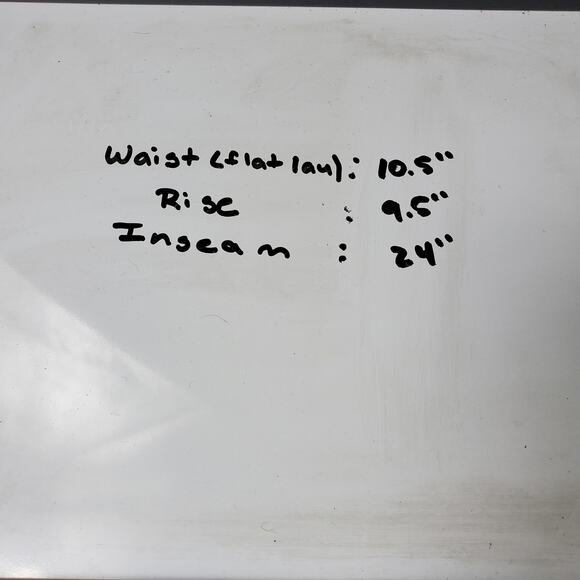 Waist (flat lay): 10.5"
Rise : 9.5"
Inseam : 24"